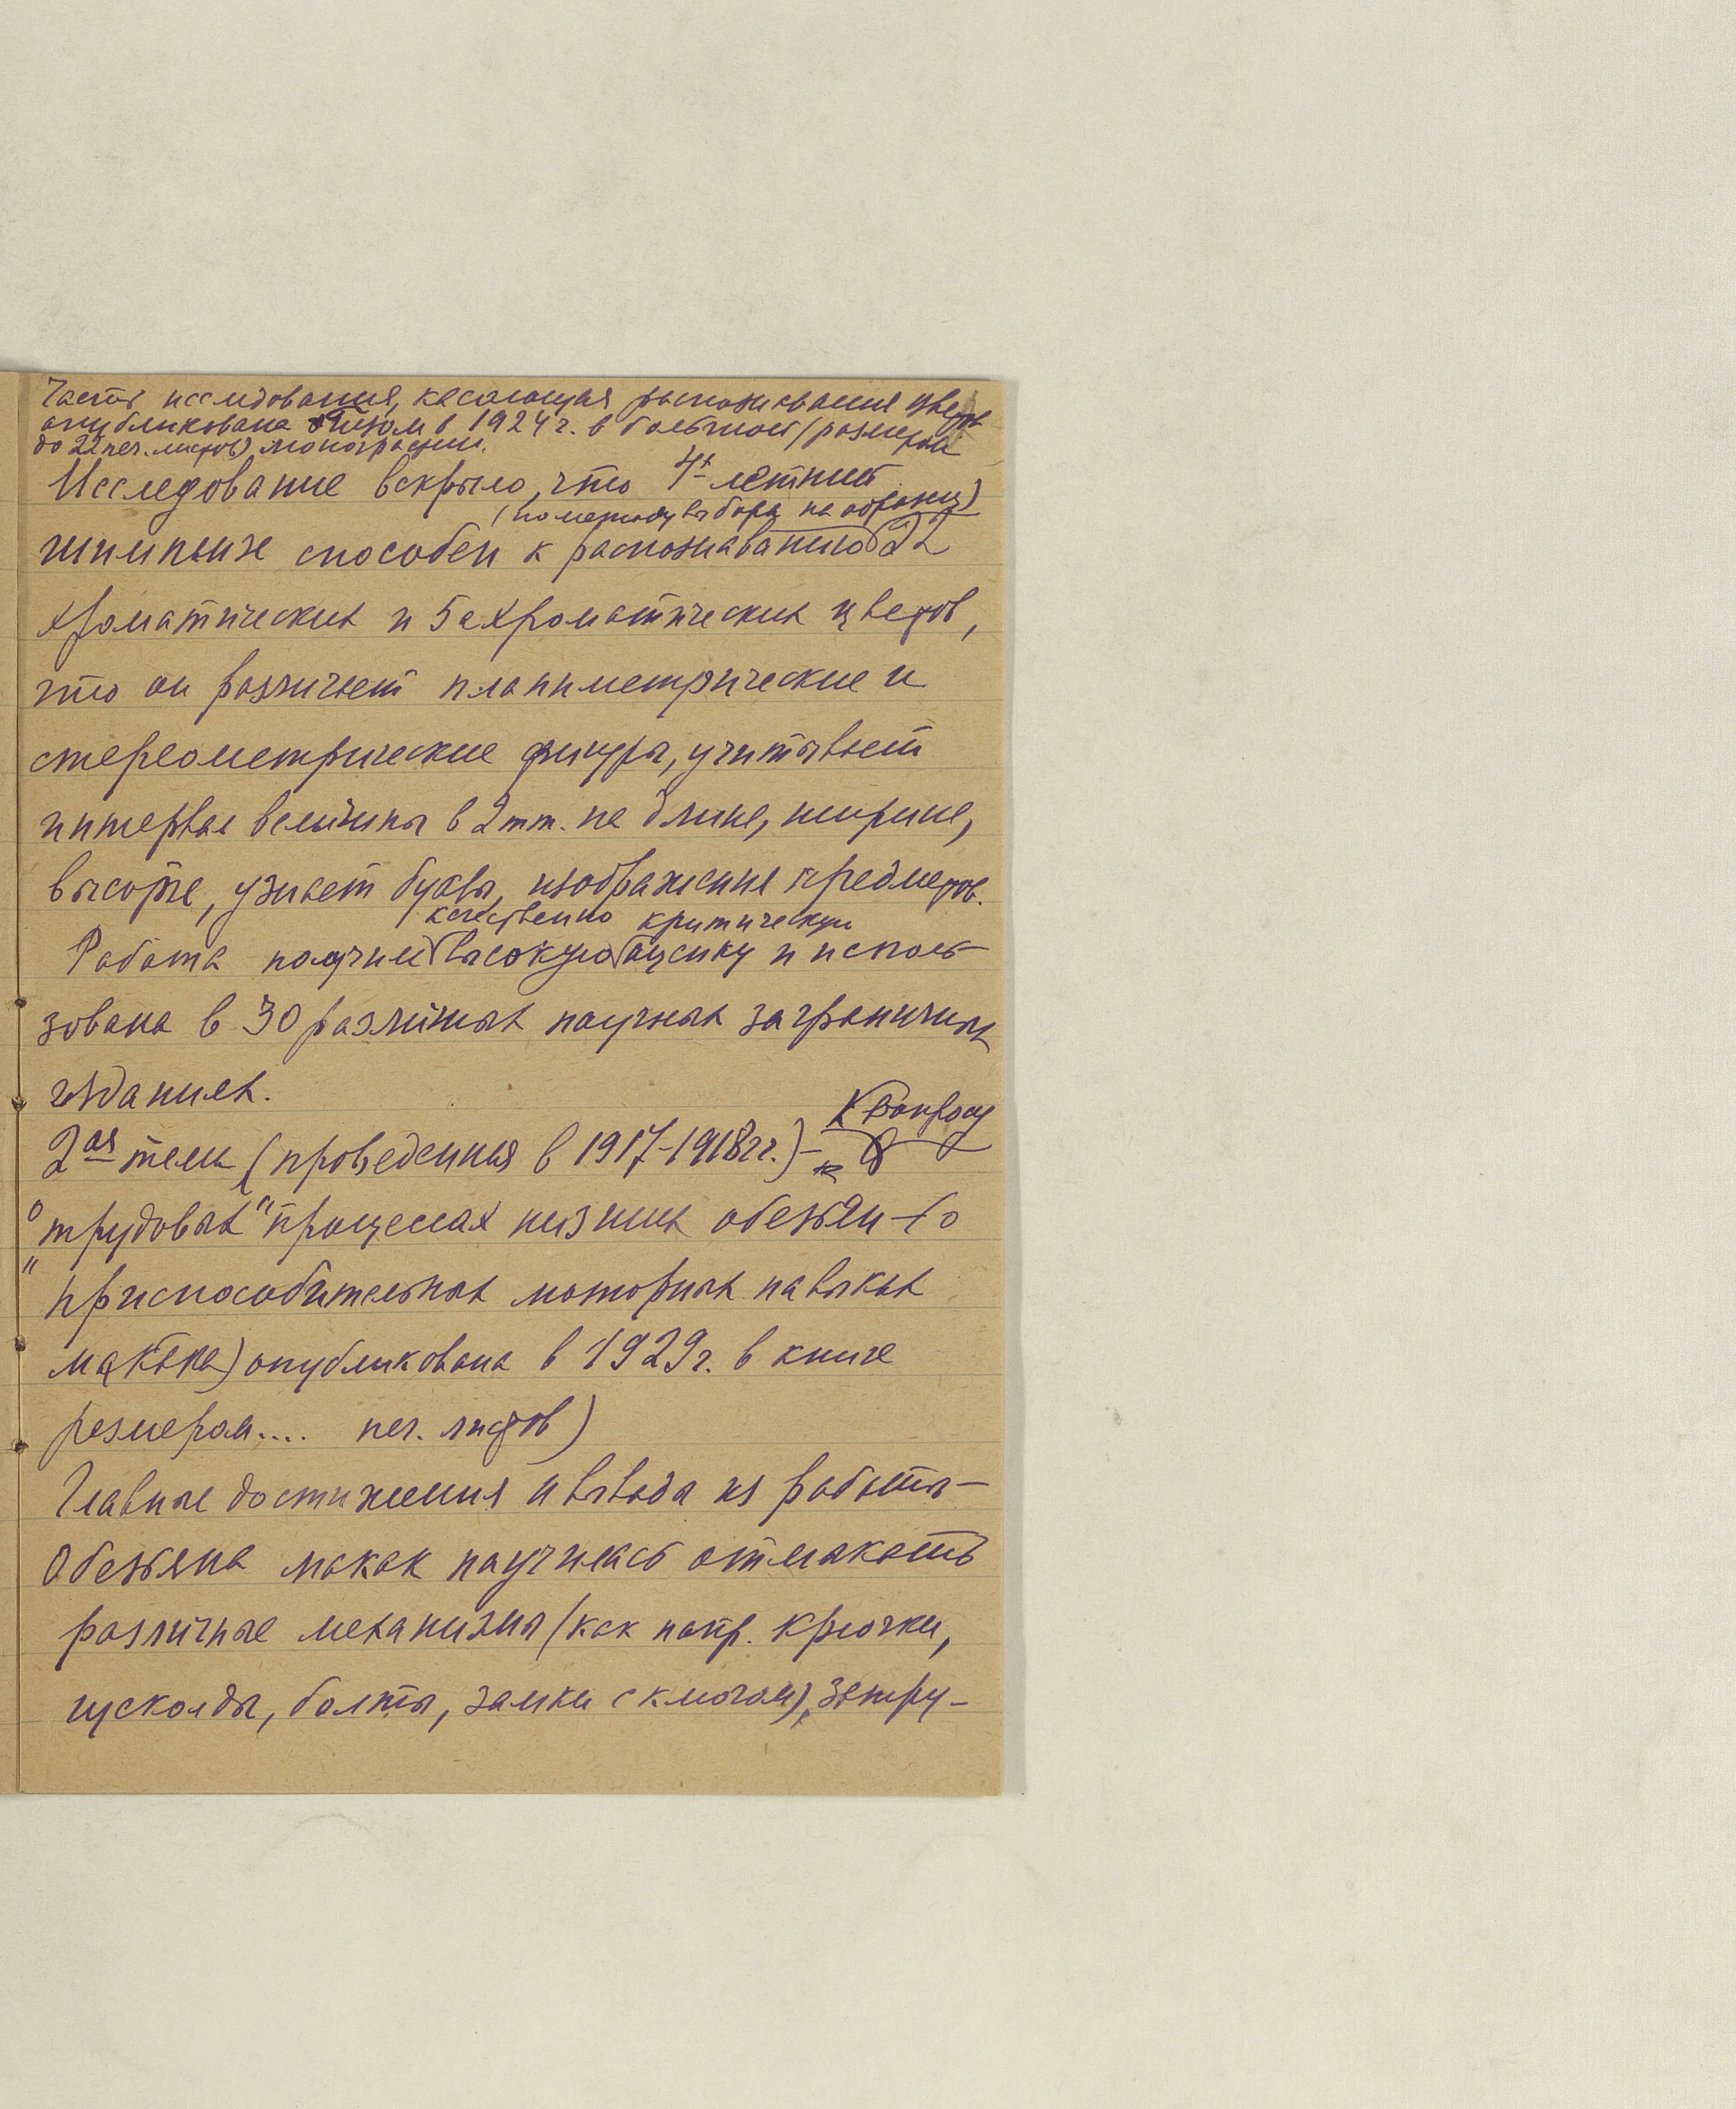 Часть исследования, касающаяся распознавания цветов
опубликована Гизом в 1924 г. в большой (размером
до 22 печ. листов) монографии.
Исследование вскрыло, что 4х летний
(по методу выбора на образец)
шимпанзе способен к распознаванию 22
хроматических и 5 ахроматических цветов,
что он различает планиметрические и
стереометрические фигуры, учитывает
интервал величины в 2 mm. по длине, ширине,
высоте, узнает буквы, изображения предметов.
качественно критическую
Работа получила высокую оценку и исполь-
зована в 30 различных научных заграничных
изданиях.
К вопросу
2ая тема (проведенная в 1917-1918 гг.) -
о
"трудовых" процессах низших обезьян (о
приспособительных моторных навыках
макака) опубликована в 1929 г. в книге
размером.... печ. листов)
Главные достижения и выводы из работы -
Обезьяна макак научилась отмыкать
различные механизмы (как напр. крючки,
щеколды, болты, замки с ключом), затру-